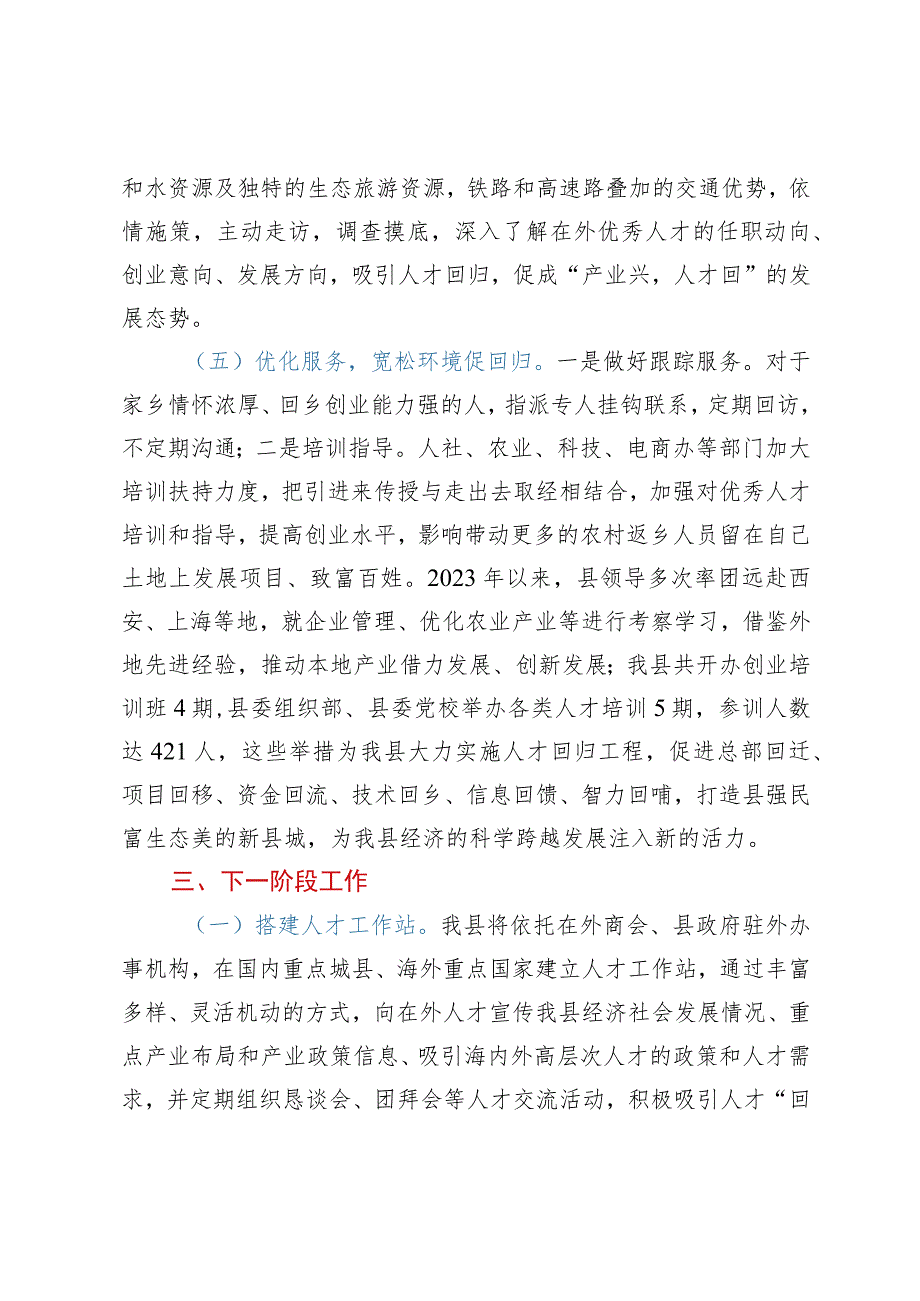 和水资源及独特的生态旅游资源，铁路和高速路叠加的交通优势，依
情施策，主动走访，调查摸底，深入了解在外优秀人才的任职动向、
创业意向、发展方向，吸引人才回归，促成“产业兴，人才回”的发
展态势。
（五）优化服务，宽松环境促回归。一是做好跟踪服务。对于
家乡情怀浓厚、回乡创业能力强的人，指派专人挂钩联系，定期回访，
不定期沟通；二是培训指导。人社、农业、科技、电商办等部门加大
培训扶持力度，把引进来传授与走出去取经相结合，加强对优秀人才
培训和指导，提高创业水平，影响带动更多的农村返乡人员留在自己
土地上发展项目、致富百姓。2023 年以来，县领导多次率团远赴西
安、上海等地，就企业管理、优化农业产业等进行考察学习，借鉴外
地先进经验，推动本地产业借力发展、创新发展；我县共开办创业培
训班 4 期,县委组织部、县委党校举办各类人才培训 5 期，参训人数
达 421 人，这些举措为我县大力实施人才回归工程，促进总部回迁、
项目回移、资金回流、技术回乡、信息回馈、智力回哺，打造县强民
富生态美的新县城，为我县经济的科学跨越发展注入新的活力。
三、下一阶段工作
（一）搭建人才工作站。我县将依托在外商会、县政府驻外办
事机构，在国内重点城县、海外重点国家建立人才工作站，通过丰富
多样、灵活机动的方式，向在外人才宣传我县经济社会发展情况、重
点产业布局和产业政策信息、吸引海内外高层次人才的政策和人才需
求，并定期组织恳谈会、团拜会等人才交流活动，积极吸引人才“回